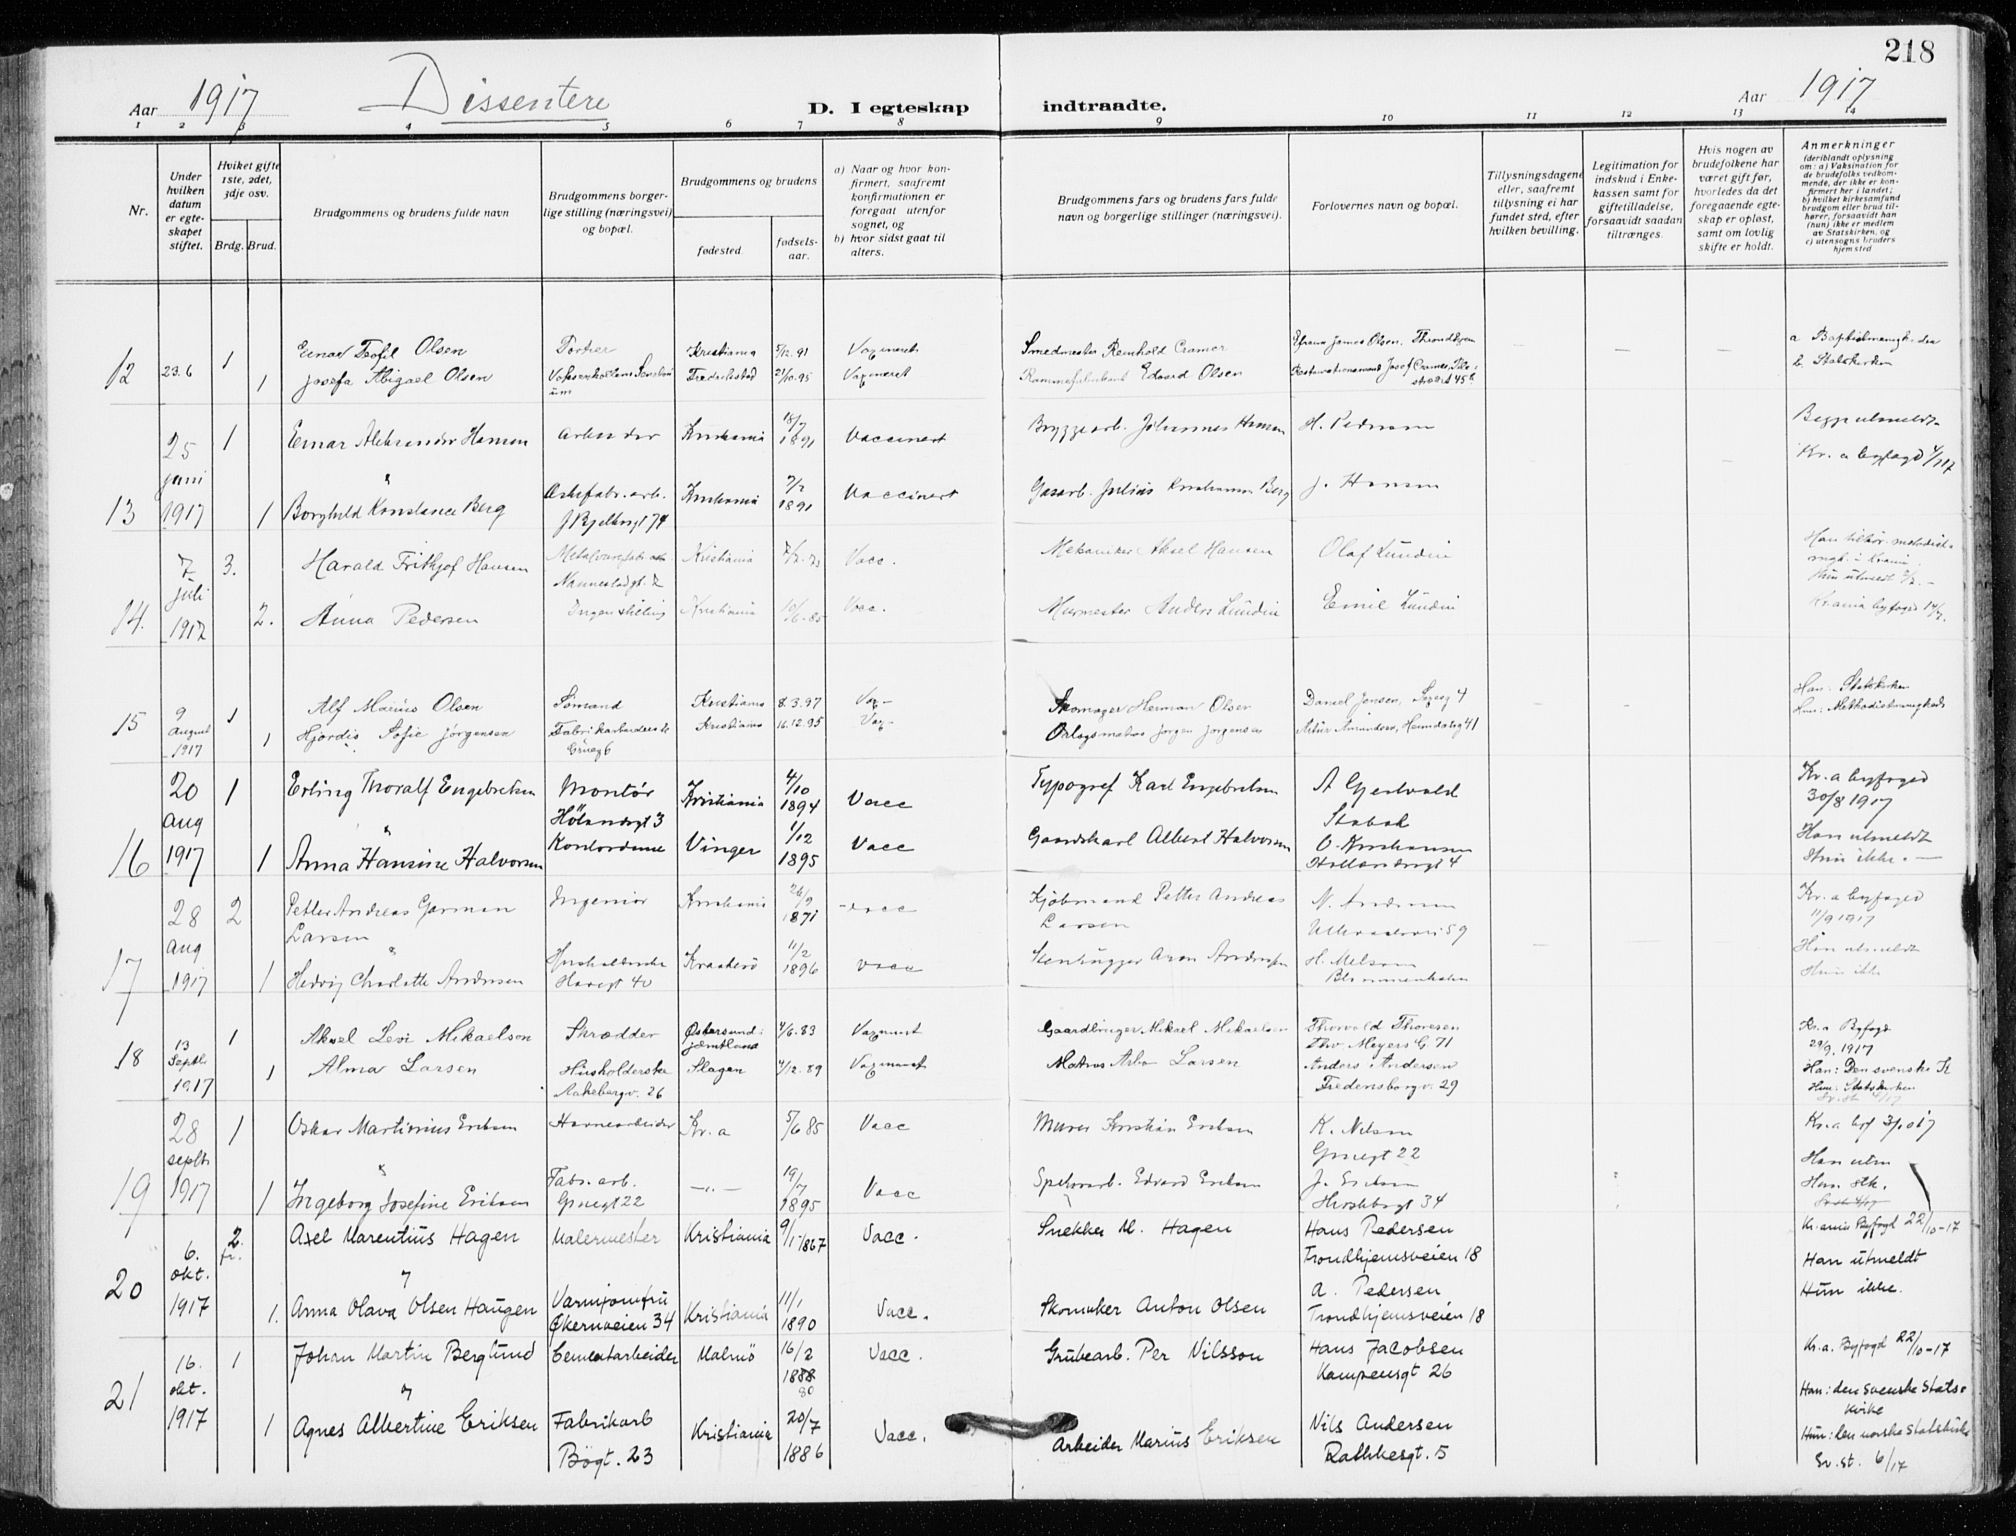 218
Aar 1917
Dissentere
D. I egteskap indtraadte.
Aar 1917
1 2 3 4 5 6 7 8 9 10 11 12 13 14
Nr.
Under hvilken datum er egteskapet stiftet.
Hviket gifte 1ste, 2det, 3dje osv.
Brdg. Brud.
Brudgommens og brudens fulde navn
Brudgommens borgerlige stilling (næringsvei) og bopæl.
Brudgommens og brudens
fødested.
fødselsaar.
a) Naar og hvor konfirmert, saafremt konfirmationen er foregaat utenfor sognet, og
b) hvor sidst gaat til alters.
Brudgommens fars og brudens fars fulde navn og borgerlige stillinger (næringsvei).
Forlovernes navn og bopæl.
Tillysningsdagene eller, saafremt tillysning ei har fundet sted, efter hvilken bevilling.
Legitimation for indskud i Enkekassen samt for giftetilladelse, forsaavidt saadan tiltrænges.
Hvis nogen av brudefolkene har været gift før, hvorledes da det foregaaende egteskap er opløst, samt om lovlig skifte er holdt.
Anmerkninger
(deriblandt oplysning om: a) Vaksination for de brudefolks vedkommende, der ikke er konfirmert her i landet; b) hvilket kirkesamfund brudgom eller brud tilhører, forsaavidt han (hun) ikke er medlem av Statskirken, og c) utensogns bruders hjemsted
12 23.6 1 Einar Teofil Olsen Portier Kristiania 5/12.91 Vaxineret Smedmester Reinhold Cramer James Olsen. Throndhjem
1 Josefa Abigael Olsen Fredrikstad 21/10.95 Vaxineret Edvard Olsen Josef Cramer
b. Statskirken
13 25 juni 1917 1 Einar Aleksander Hansen Arbeider Kristiania 18/7 1891 Vaccinert Bryggearb. Johannes Hansen H. Pedersen
Begge utmeldt
Kr.a byfogd
1 Borghild Konstance Berg J Bjelkesgt 74 Kristiania 7/2 1891 Vaccinert Gasarb. Julius Kristiansen Berg J. Hansen
14. 7 juli 1917 3. Harald Frithjof Hansen Nannestadgt. 7 Kristiania Vacc. Mekaniker Aksel Hansen Olaf Lundin
2. Anna Pedersen Ingen stilling Kristiania 10/6.85 Vacc. Murmester Anders Lundin Emil Lundin
15 9 august 1917 1 Alf Marius Olsen Sømand Kristiania 8.3.97 Vax- Skomager Herman Olsen Daniel Jensen,
Han: Statskirken
1 Hjørdis Sofie Jørgensen Fabrikarbeiderske Grüneg 6 Kristiania 16.12.95 Vax- Jørgen Jørgensen Artur Amundsen, Heimdalsg 41
Hun: Methodistmenigheds
16 20 aug 1917 1 Erling Thoralf Engebretsen Montør Hölandsgt 3 Kristiania 4/10 1894 Vacc Typograf Karl Engebretsen A Gjestvold Stabek
Kr.a byfoged 30/8 1917
1 Anna Hansine Halvorsen Kontordame Vinger 1/12 1895 Vacc Gaardskarl Albert Halvorsen O. Kristiansen Hollændergt 4
Han utmeldt
Hun ikke.
17 28 aug 1917 2 Petter Andreas Garman Larsen Ingeniør Kristiania 26/9 1871 vacc Kjøbmand Petter Andreas Larsen N. Andersen Ullevaalsvei 59
Kr.a byfoged 11/9 1917
1 Hedvig Charlotte Andersen Husholderske Havegt 40 Kragerø 11/2 1896 vacc Stenhugger Aron Andersen H. Nielsen Blommenholm
Han utmeldt
Hun ikke
18 13 Septbr 1917 1 Aksel Levi Mikaelson Skrædder Østersund: jæmtland 4/6.83 Vaxineret Gaardbruger Mikael Mikaelsen Thorvald Thoresen Thv. Meyers G 71
Kr.a Byfogd 29/9.1917
1 Alma Larsen Husholderske Aakebergv. 26 Slagen 4/12.89 Vaxineret Matros Larsen Anders Andersen Fredensborgv. 29
Han: Den svenske K
Hun: Statskirken
19 28 septbr 1917 1 Oskar Martinius Eriksen Havnearbeider Kr.a 5/6 85 Vacc Murer Kristian Eriksen K. Nilsen Grünegt 22
Kr.a byf 3/10 17
1 Ingeborg Josefine Eriksen Fabr. arb. Grünegt 22 —„— 19/7 1895 Vacc Edvard Eriksen J. Eriksen 34
Han utm
Hun stk.
20 6. okt. 1917 2. fr. Axel Marentius Hagen Malermester Kristiania 9/1-1867 Vacc. Snekker M. Hagen Hans Pedersen Trondhjemsveien 18
Kr.ania Byfogd 22/10-17
1. Anna Olava Olsen Haugen Varmjomfru Økernveien 34 Kristiania 11/1 1890 Vacc. Skomaker Anton Olsen A. Pedersen Trondhjemsveien 18
Han utmeldt
Hun ikke.
21 16. okt. 1917 1 Johan Martin Berglund Cementarbeider Malmö 16/2 1888 80 Vacc. Grubearb. Per Nilsson Hans Jacobsen Kampensgt 26
Kr.a. Byfogd 22/10-17
1 Agnes Albertine Eriksen Fabrikarb Bögt. 23 Kristiania 20/7 1886 Vacc. Arbeider Marius Eriksen Nils Andersen Rathkesgt. 5
Han: den svenske Statskirke
Hun: den norske Statskirke
Sv. st. 6/17